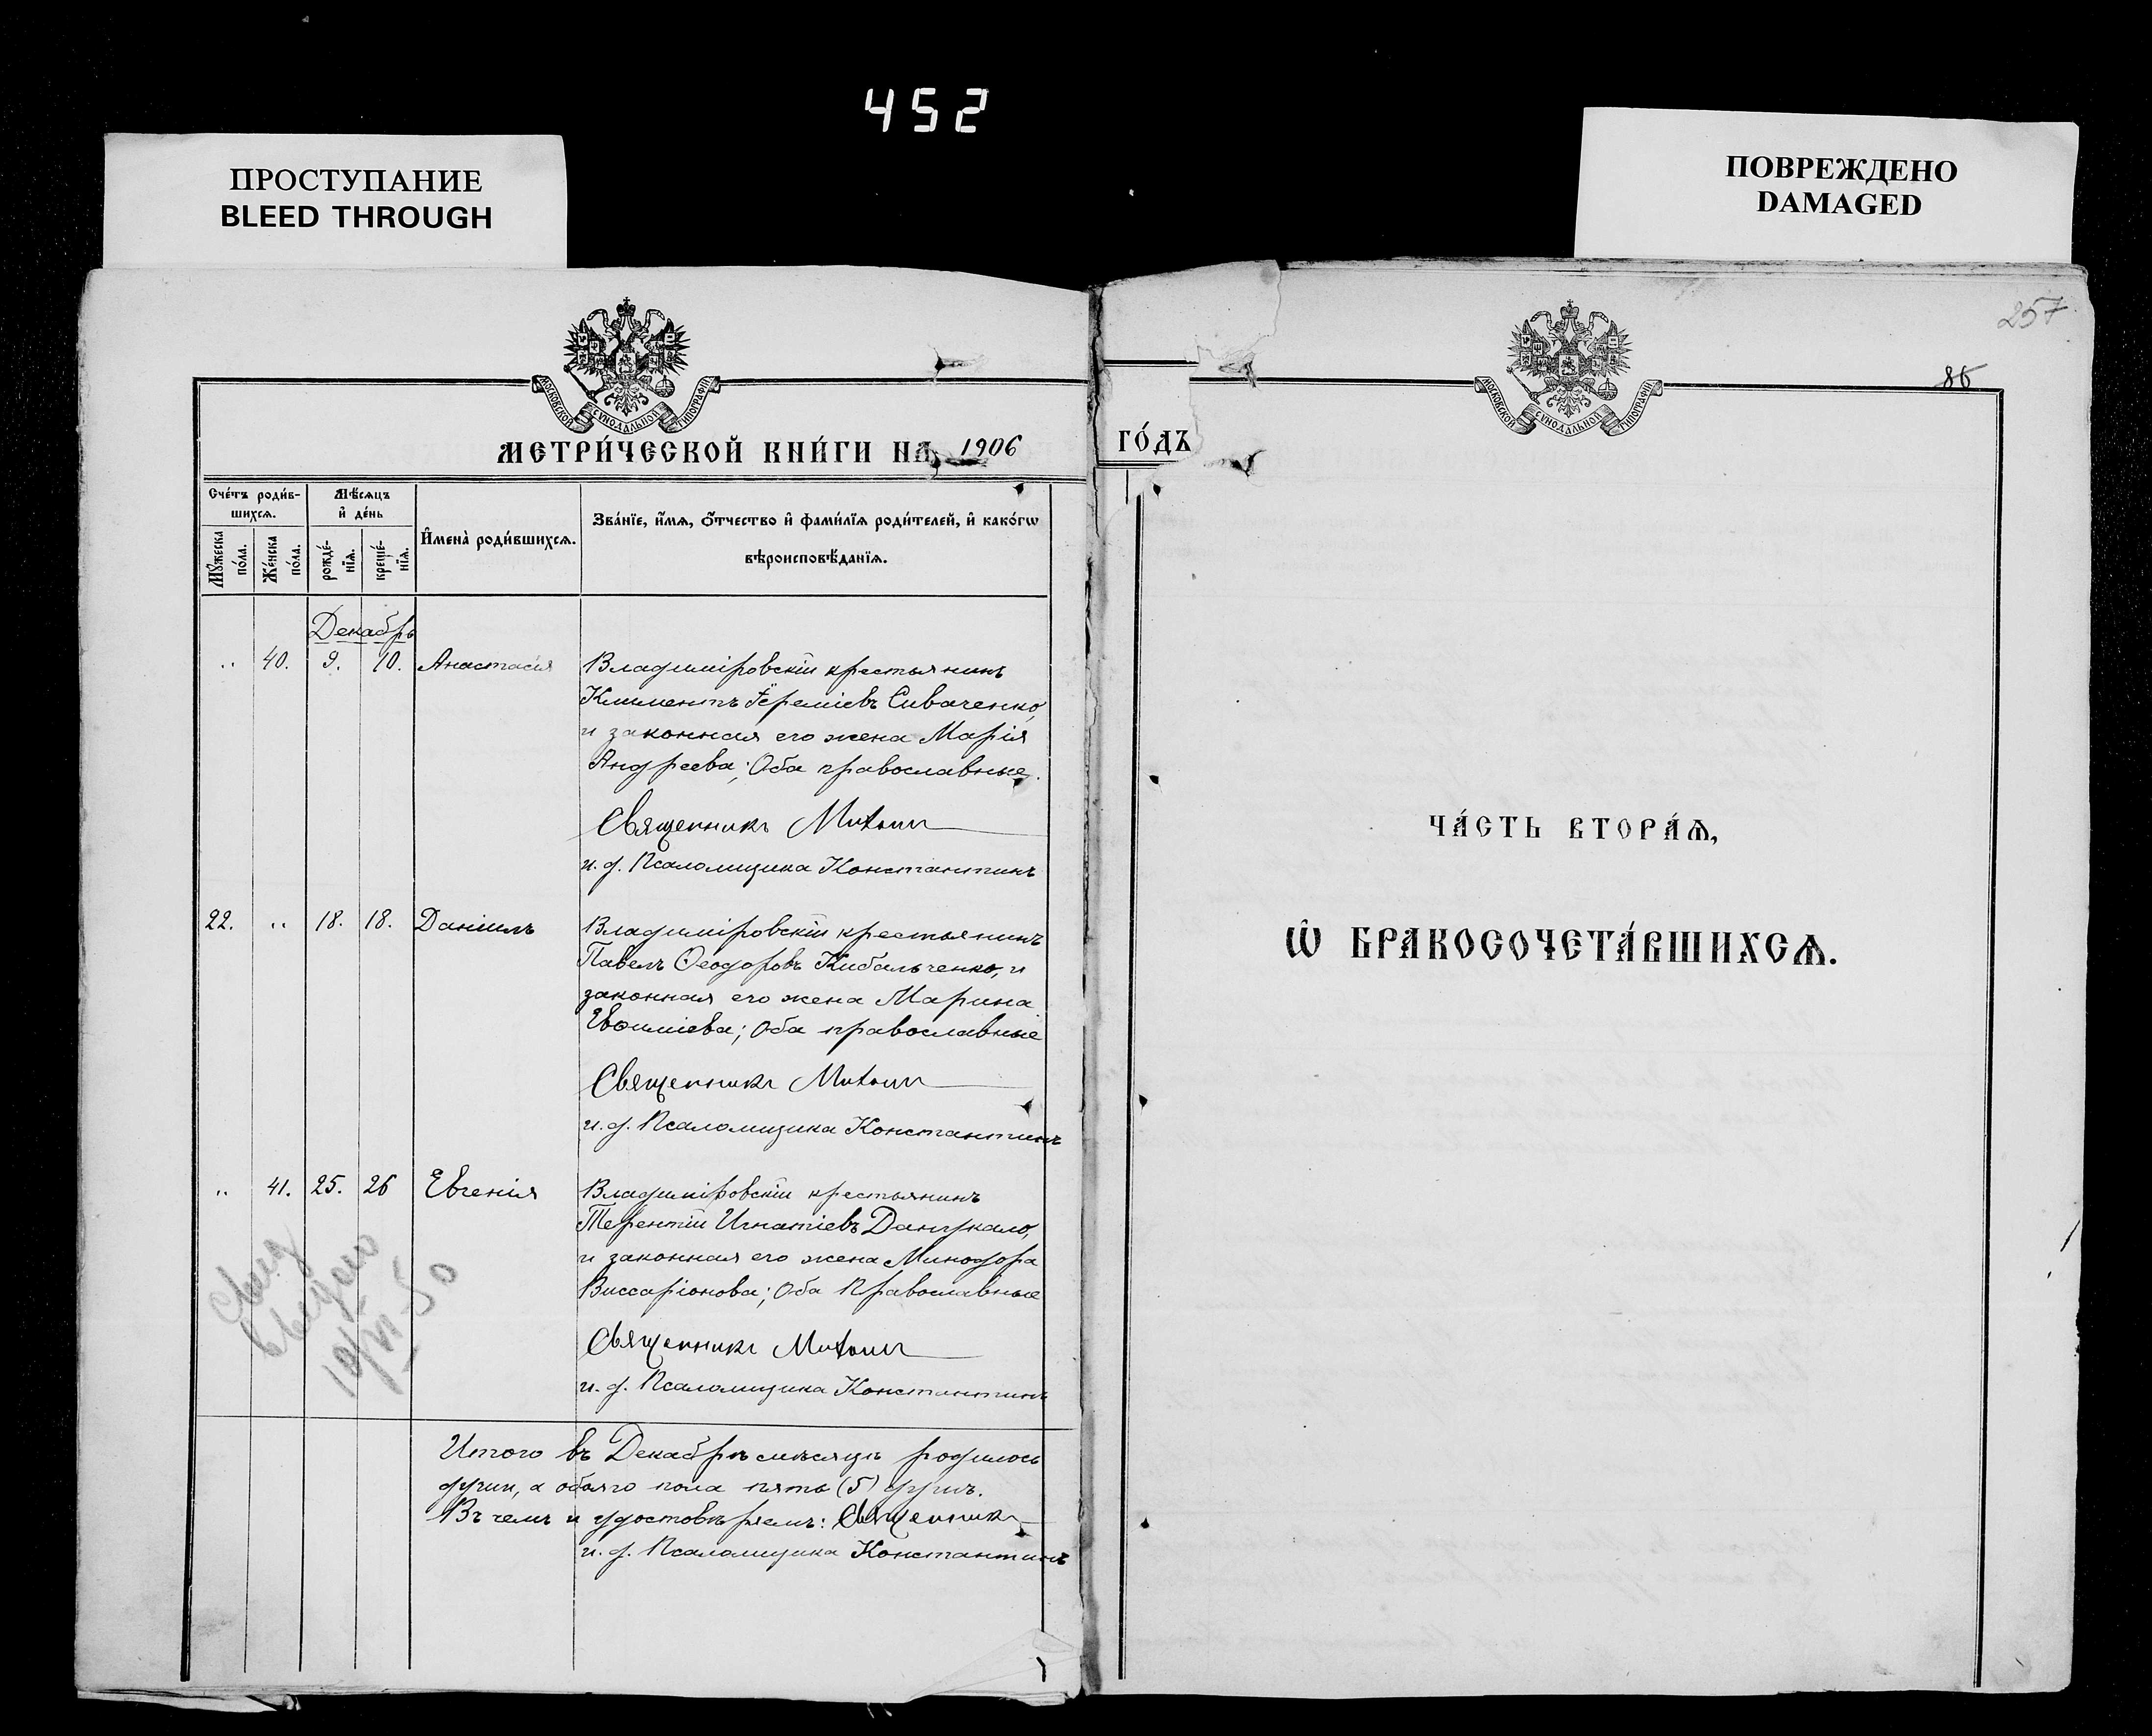 452
ПРОСТУПАНИЕ
BLEED THROUGH
ПОВРЕЖДЕНО
DAMAGED
МОСКОВСКОЙ СѴНОДАЛЬНОЙ ТИПОГРАФІИ
МЕТРИ́ЧЕСКОЙ КНИ́ГИ НА 1906
Сче́тъ роди́в-
шихсѧ.
Мѣ́сѧцъ
и҆ де́нь
Мꙋ́жеска
по́ла.
Же́нска
по́ла.
рожде́-
нїѧ.
креще́-
нїѧ.
И҆мена̀ роди́вшихсѧ.
Зва́нїе, и҆́мѧ, ѻ҆́тчество и҆ фами́лїѧ роди́телей, и҆ како́гѡ
вѣроисповѣ́данїѧ.
Декабрь
,, 40. 9. 10. Анастасія Владимировскій крестьянинъ
Климентъ Іереміевъ Сиваченко,
и законная его жена Марія
Андреева; Оба православные.
Священникъ
и. д. Псаломщика Константинъ
22. ,, 18. 18. Даніилъ Владиміровскій крестьянинъ
Павелъ Ѳеодоровъ Кибальченко, и
законная его жена Марина
Евѳиміева; Оба православные
Священникъ
и. д. Псаломщика Константинъ
,, 41. 25. 26 Евгенія Владиміровскій крестьянинъ
Терентій Игнатіевъ Данукало,
и законная его жена Минодора
Виссаріонова; Оба Православные
Священникъ
и. д. Псаломщика Константинъ
10/VI 50
Итого въ Декабрѣ мѣсяцѣ родилось
души, а обоего пола пять (5) душъ.
Въ чемъ и удостовѣряемъ: Священникъ
и. д. Псаломщика Константинъ
ГО́ДЪ
МОСКОВСКОЙ СѴНОДАЛЬНОЙ ТИПОГРАФІИ
257
86
ЧА́СТЬ ВТОРА́Ѧ,
Ѽ БРАКОСОЧЕТА́ВШИХСѦ.